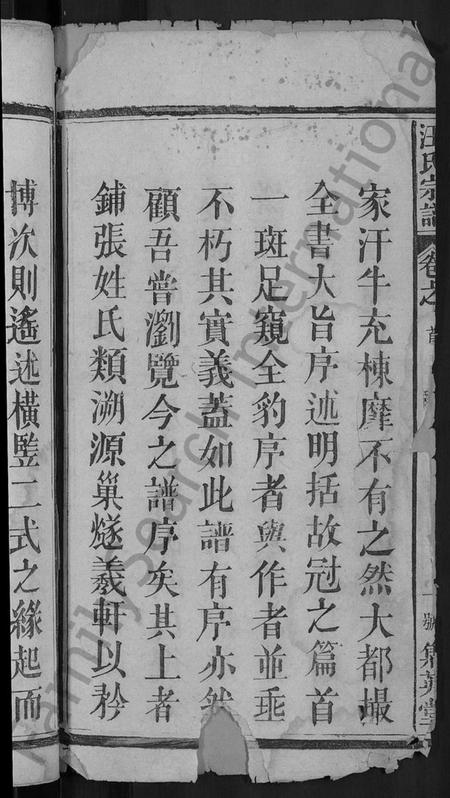 汪氏宗譜 卷之 號
家汗牛充棟靡不有之然大都撮
全書大旨序述明括故冠之篇首
一斑足窺全豹序者與作者並垂
不朽其實義蓋如此譜有序亦然
顧吾嘗瀏覽今之譜序矣其上者
鋪張姓氏類溯源巢燧羲軒以矜
博次則遙述橫豎二式之緣起而
FamilySearch International